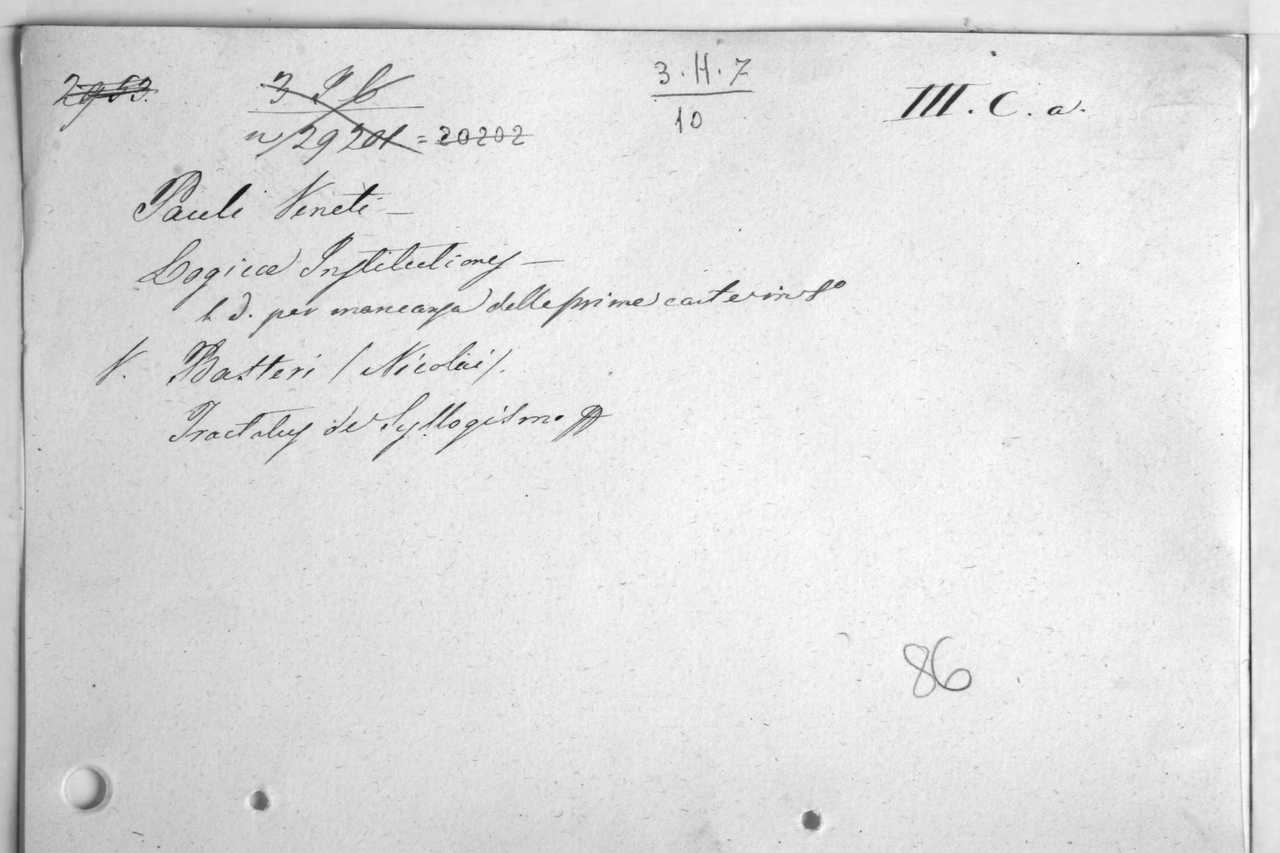 2953. 3 P 6 3.H.7 III. C. a.
n/29201 = 20202 10
Pauli Veneti —
Logicæ Institutiones —
s. d. per mancanza delle prime carte in 8º
V. Batteri / Nicolai/.
Tractatus de Syllogismo
86